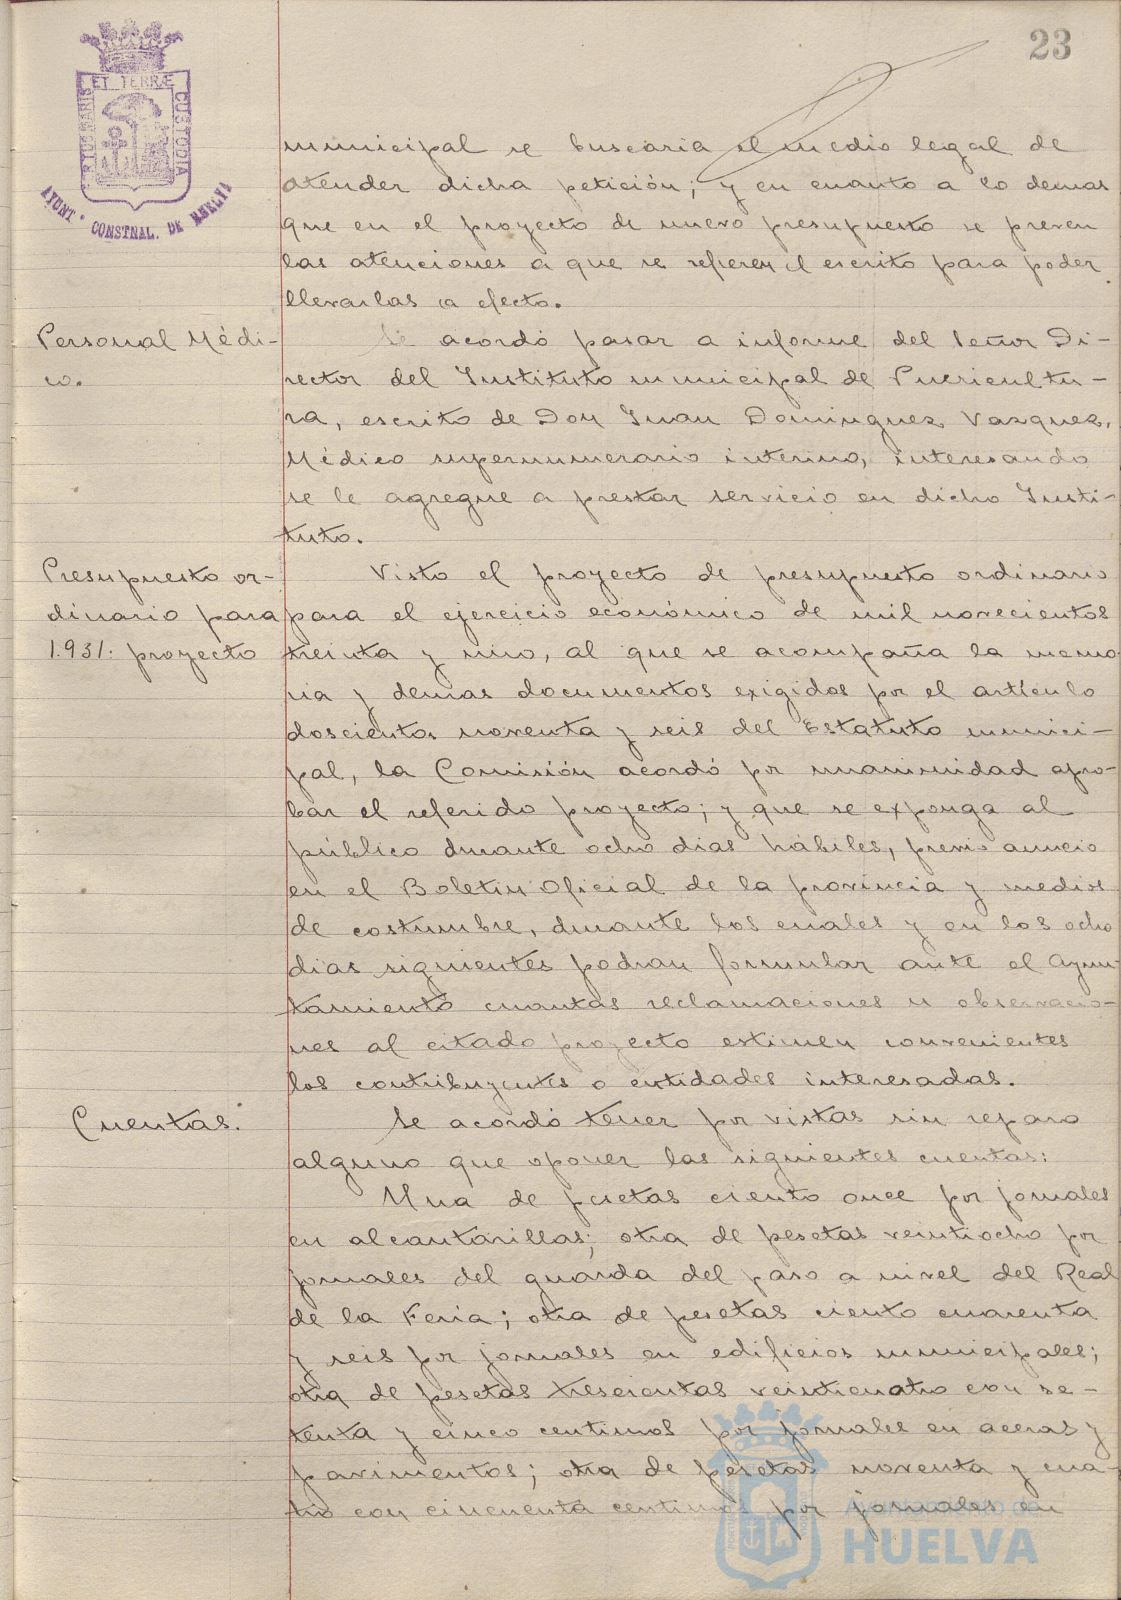 23
PORTUS MARIS ET TERRÆ CUSTODIA
AYUNT° CONSTNAL. DE HUELVA
municipal se buscaria el medio legal de
atender dicha petición; y en cuanto a lo demas
que en el proyecto de nuevo presupuesto se preven
las atenciones a que se referen el escrito para poder
llevarlas a efecto.
Personal Médi-
co.
Se acordó pasar a informe del Señor Di-
rector del Instituto municipal de Puericultu-
ra, escrito de Don Juan Dominguez Vazquez,
Médico supernumerario interino, interesando
se le agregue a prestar servicio en dicho Insti-
tuto.
Presupuesto or-
dinario para
1.931: proyecto
Visto el proyecto de presupuesto ordinario
para el ejercicio económico de mil novecientos
treinta y uno, al que se acompaña la memo
ria y demas documentos exigidos por el artículo
doscientos noventa y seis del Estatuto munici-
pal, la Comisión acordó por unanimidad apro-
bar el referido proyecto; y que se exponga al
público durante ocho dias hábiles, previo anuncio
en el Boletin Oficial de la provincia y medios
de costumbre, durante los cuales y en los ocho
dias siguientes podran formular ante el Ayun-
tamiento cuantas reclamaciones u observacio-
nes al citado proyecto estimen convenientes
los contribuyentes o entidades interesadas.
Cuentas.
Se acordó tener por vistas sin reparo
alguno que oponer las siguientes cuentas:
Una de pesetas ciento once por jornales
en alcantarillas; otra de pesetas veintiocho por
jornales del guarda del paso a nivel del Real
de la Feria; otra de pesetas ciento cuarenta
y seis por jornales en edificios municipales;
otra de pesetas trescientas veinticuatro con se-
tenta y cinco centimos por jornales en aceras y
pavimentos; otra de pesetas noventa y cua-
tro con cincuenta centimos por jornales en
Ayuntamiento de
HUELVA